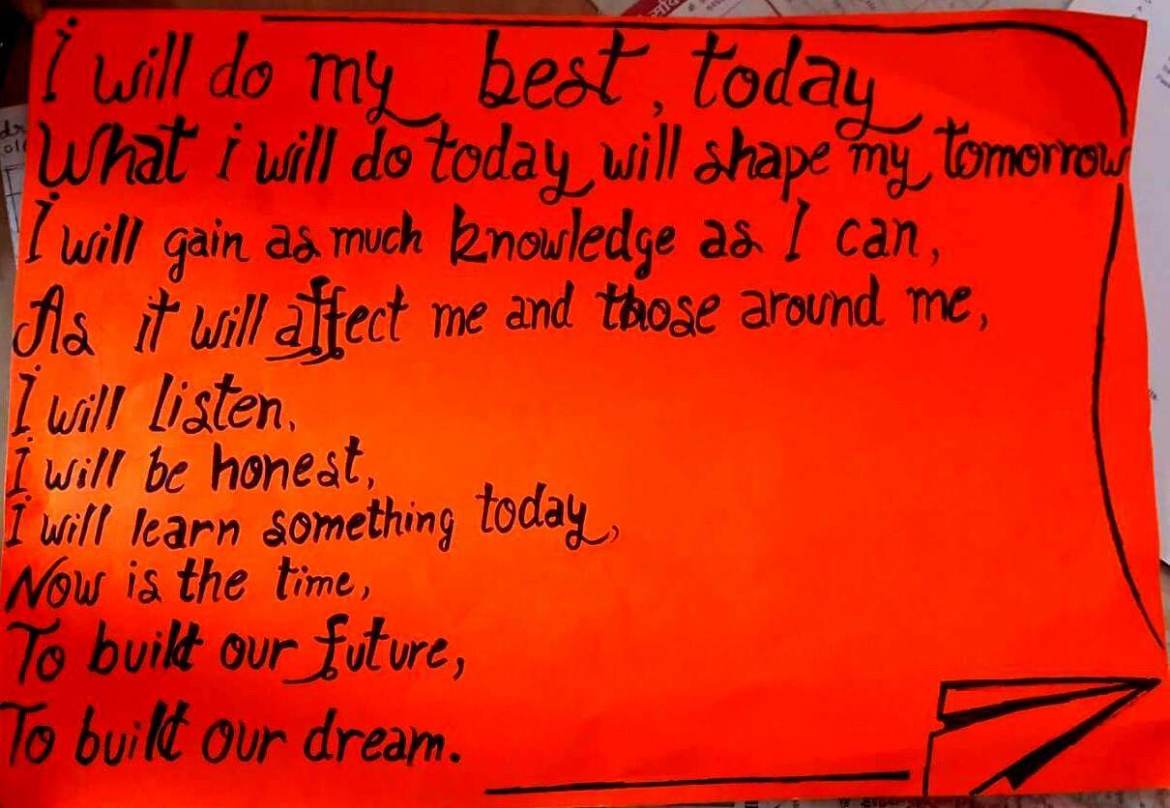 I will do my best, today
What i will do today will shape my tomorrow
I will gain as much knowledge as I can,
As it will affect me and those around me,
I will listen,
I will be honest,
I will learn something today,
Now is the time,
To built our future,
To built our dream.